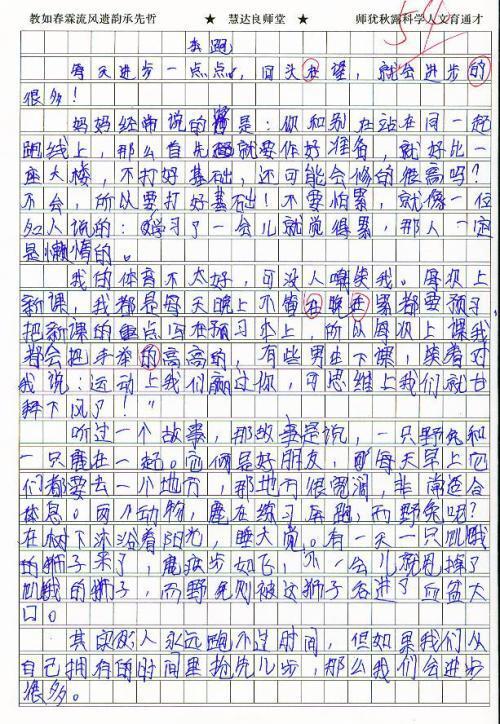 教如春霖流风遗韵承先哲 ★ 慧达良师堂 ★ 师犹秋露科学人文育通才
54
奔跑
每天进步一点点，回头在望，就会进步的
很多！
妈妈经常说的就是：你和别在站在同一起
跑线上，那么首先就要作好准备，就好比一
座大楼，不打好基础，还可能会修的很高吗？
不会，所以要打好基础！不要怕累，就像一位
名人说的：学习了一会儿就觉得累，那人一定
是懒惰的。
我的体育不太好，可没人嘲笑我。每次上
新课，我都是每天晚上不管在晚在累都要预习，
把新课的重点写在预习本上，所以每次上课我
都会把手举的高高的，有些男生下课，笑着对
我说：运动上我们赢过你，可思维上我们就甘
拜下风了！”
听过一个故事，那故事是说，一只野兔和
一只鹿在一起。它俩是好朋友，每天早上它
们都要去一个地方，那地方很宽阔，非常适合
休息。两个动物，鹿在练习奔跑，而野兔呢？
在树下沐浴着阳光，睡大觉。有一天一只饥饿
的狮子来了，鹿健步如飞，不一会儿就甩掉了
饥饿的狮子，而野兔则被这狮子吞进了血盆大
口。
其实人永远跑不过时间，但如果我们从
自己拥有的时间里抢先几步，那么我们会进步
很多。